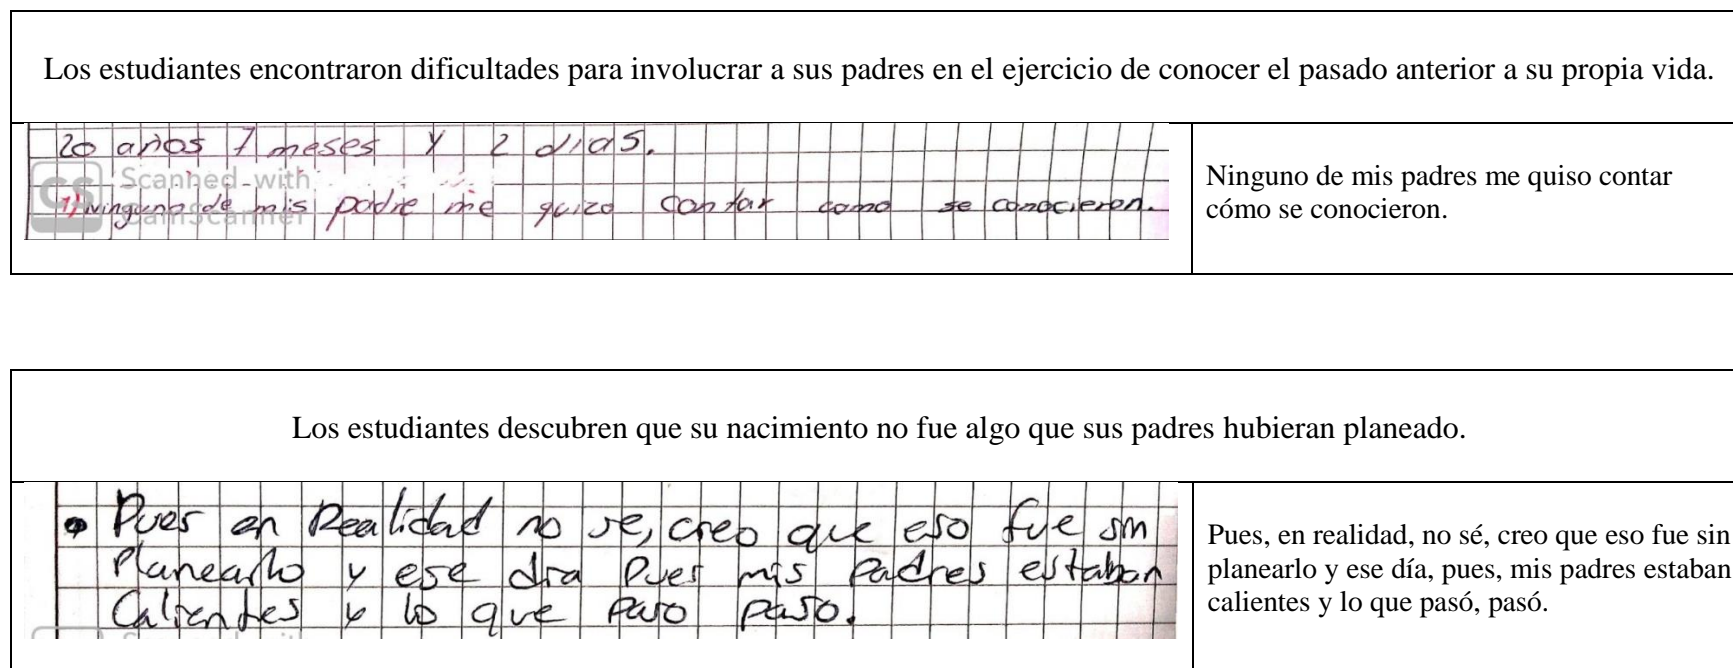 Los estudiantes encontraron dificultades para involucrar a sus padres en el ejercicio de conocer el pasado anterior a su propia vida.
20 años 7 meses y 2 dias.
Scanned with
CS
CamScanner
1) ninguno de mis padre me quizo contar como se conocieron.
Ninguno de mis padres me quiso contar
cómo se conocieron.
Los estudiantes descubren que su nacimiento no fue algo que sus padres hubieran planeado.
Pues en Realidad no se, creo que eso fue sin
Planearlo y ese dia Pues mis Padres estaban
Calientes y lo que paso paso.
Pues, en realidad, no sé, creo que eso fue sin
planearlo y ese día, pues, mis padres estaban
calientes y lo que pasó, pasó.